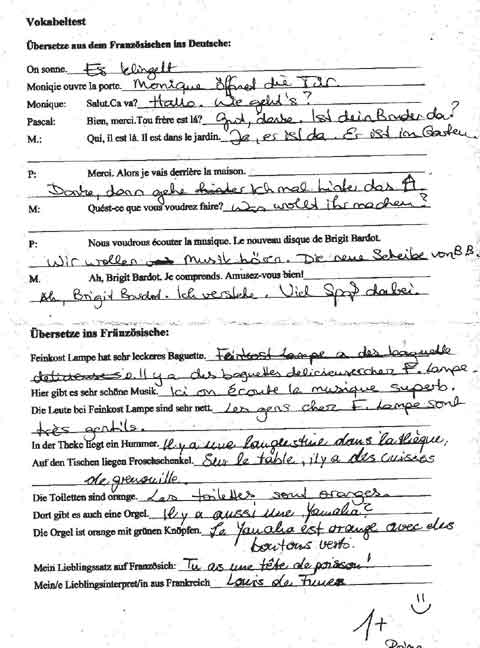 Vokabeltest
Übersetze aus dem Französischen ins Deutsche:
On sonne. Es klingelt
Moniqie ouvre la porte. Monique öffnet die Tür.
Monique: Salut.Ca va? Hallo. Wie geht's?
Pascal: Bien, merci.Tou frère est là? Gut, danke. Ist dein Bruder da?
M.: Qui, il est là. Il est dans le jardin. Ja, er ist da. Er ist im Garten.
P: Merci. Alors je vais derrière la maison.
Danke, dann gehe ich mal hinter das
M: Quést-ce que vous voudrez faire? Was wollt ihr machen?
P: Nous voudrons écouter la musique. Le nouveau disque de Brigit Bardot.
Wir wollen Musik hören. Die neue Scheibe von B.B.
M. Ah, Brigit Bardot. Je comprends. Amusez-vous bien!
Ah, Brigit Bardot. Ich verstehe. Viel Spaß dabei.
Übersetze ins Fränzösische:
Feinkost Lampe hat sehr leckeres Baguette. Feinkost Lampe a des baguette
delicieuses. Il y a des baguettes delicieuses chez F. Lampe.
Hier gibt es sehr schöne Musik. Ici on écoute la musique superb.
Die Leute bei Feinkost Lampe sind sehr nett. Les gens chez F. Lampe sont
très gentils.
In der Theke liegt ein Hummer. Il y a une langustine dans la thèque,
Auf den Tischen liegen Froschschenkel. Sur le table, il y a des cuisies
de grenouille.
Die Toiletten sind orange. Les toilettes sond oranges.
Dort gibt es auch eine Orgel. Il y a aussi une Yamaha?
Die Orgel ist orange mit grünen Knöpfen. La Yamaha est orange avec des
boutons verts.
Mein Lieblingssatz auf Französich: Tu as une tête de poisson!
Mein/e Lieblingsinterpret/in aus Frankreich Louis de Funes
1+